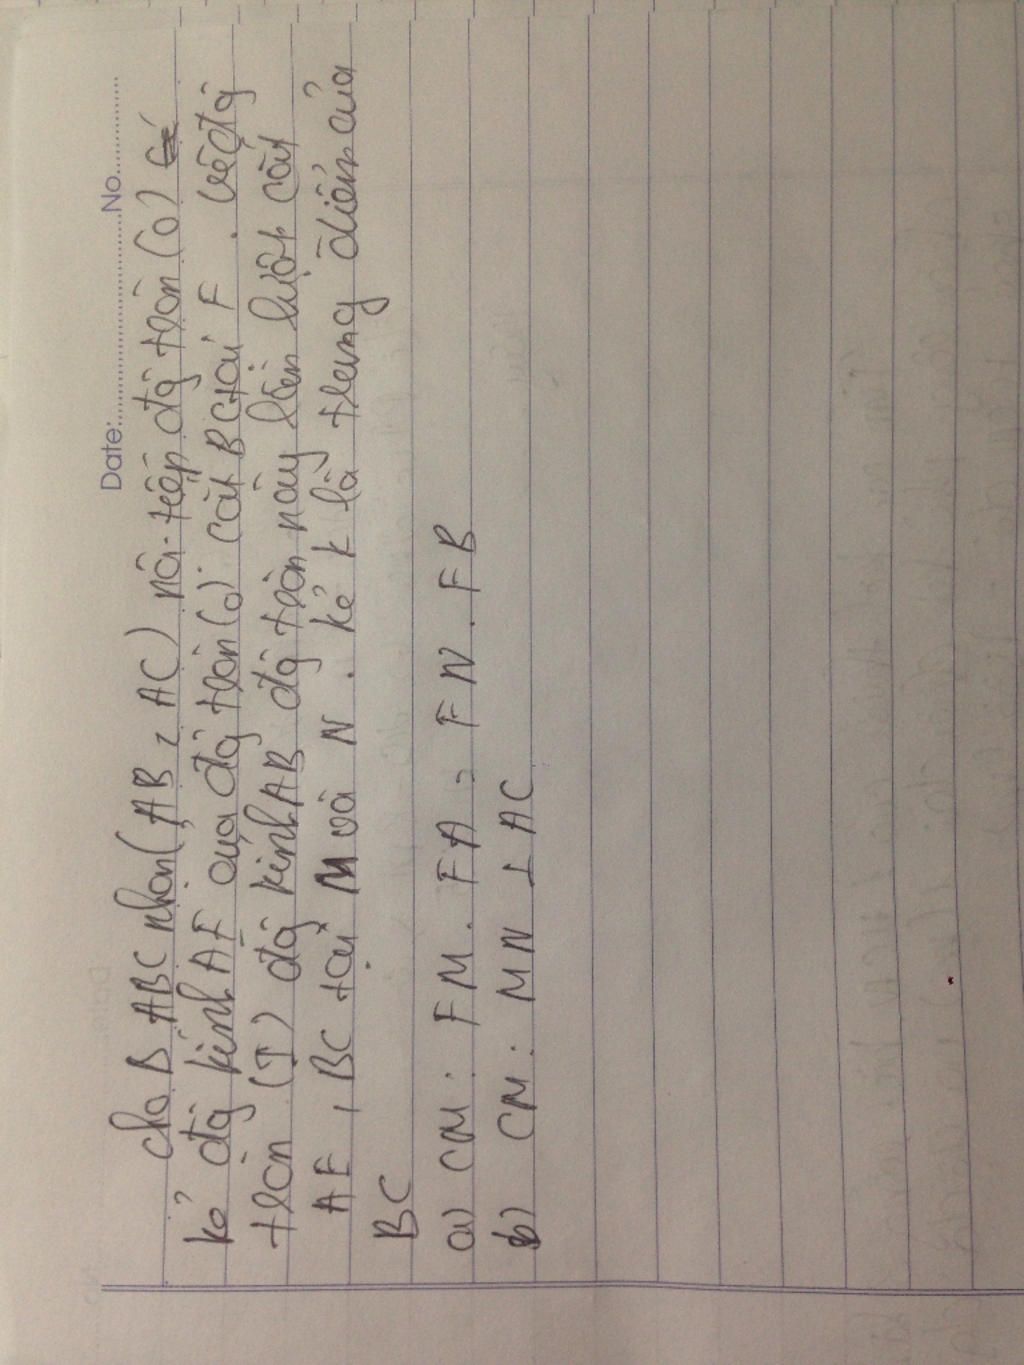 Date:....................No..........
cho Δ ABC nhọn (AB < AC) nội tiếp đg tròn (O)
kẻ đg kính AF của đg tròn (O) cắt BC tại F. vẽ đg
tròn (I) đg kính AB đg tròn này lần lượt cắt
AF, BC tại M và N. kẻ K là trung điểm của
BC
a) CM: FM. FA = FN. FB
b) CM: MN ⊥ AC